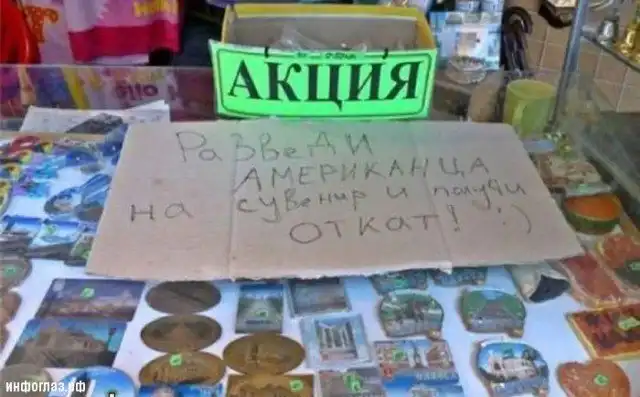 АКЦИЯ
РаЗВеДИ
АМЕРИКАНЦА
на сувенир и получи
ОТКАТ! :)
инфоглаз.рф